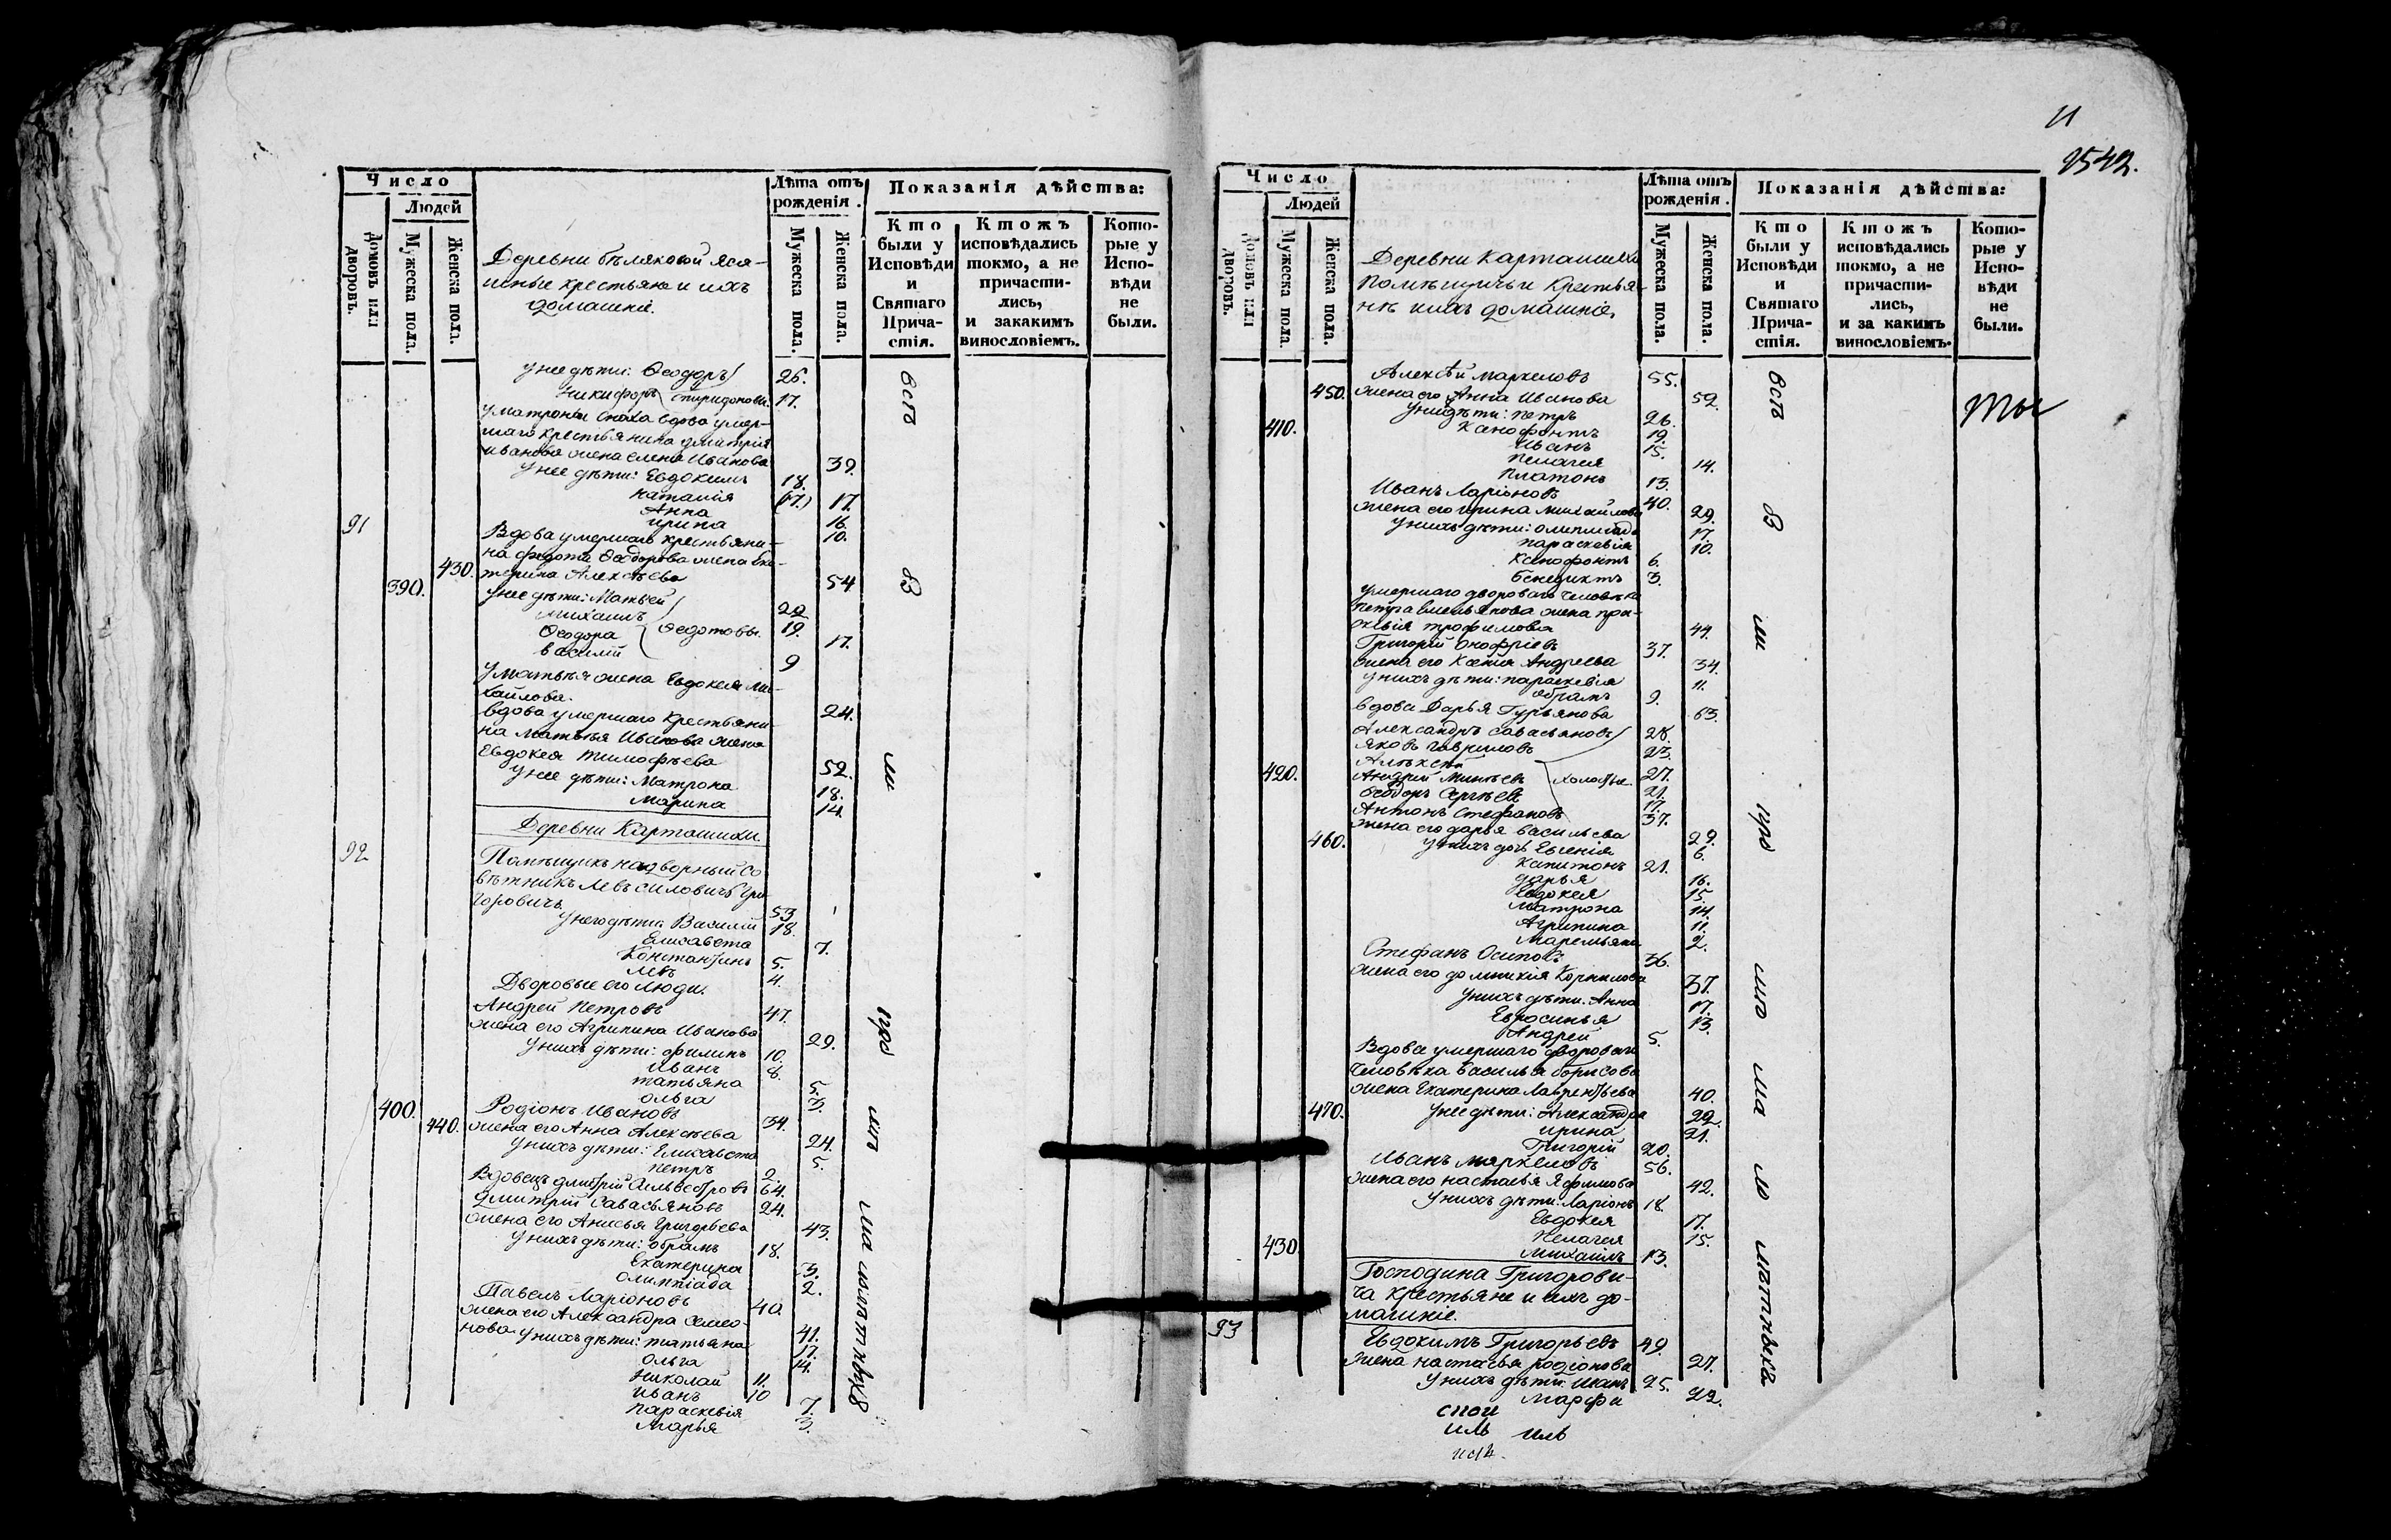 Число
Людей
Домовъ или дворовъ.
Мужеска пола.
Женска пола.
Деревни Бѣляковой яса-
шные крестьяне и ихъ
домашніе.
Лѣта отъ рожденія.
Мужеска пола.
Женска пола.
Показанія дѣйства:
Кто были у Исповѣди и Святаго Прича-стія.
Ктожъ исповѣдались токмо, а не причасти-лись, и закакимъ винословіемъ.
Кото-рые у Испо-вѣди не были.
у нее дѣти: Ѳеодоръ 26.
Никифоръ Спиридоновы. 17.
у матроны сноха вдова умер-
шаго крестьянина Дмитрія
Иванова жена Елена Иванова 39.
у нее дѣти: Евдокимъ 18.
Наталия (17.) 17.
Анна 16.
Ирина 10.
91 Вдова умершаго крестьяни-
на Федота Ѳеодорова жена Ека-
430. терина Алексѣева 54
390. у нее дѣти: Матвей 22
Михаилъ 19.
Ѳеодора Федотовы. 17.
Василій 9
у матвѣя жена Евдокея Ми-
хайлова. 24.
вдова умершаго крестьяни-
на Матвѣя Иванова жена
Евдокея Тимофѣева 52.
у нее дѣти: Матрона 18.
Марина 14.
Деревни Карташихи.
92 Помѣщикъ надворный со
вѣтникъ Левъ Силовичъ Гри-
горовичъ 53
у него дѣти: Василій 18.
Елисавета 7.
Константинъ 5.
Левъ 4.
Дворовые его люди.
Андрей Петровъ 47.
жена его Агрипина Иванова 29.
у нихъ дѣти: Филипъ 10.
Иванъ 8.
Татьяна 5.
Ольга 3.
400. Родіонъ Ивановъ 34.
440. жена его Анна Алексѣева 24.
у нихъ дѣти: Елисавета 5.
Петръ 2.
Вдовецъ Дмитрій Сильвестровъ 64.
Дмитрій Савасьяновъ 24.
жена его Анисья Григорьева 43.
у нихъ дѣти: Обрамъ 18.
Екатерина 3.
Олимпіада 2.
Павелъ Ларіоновъ 40.
жена его Александра Семео-
нова 41.
у нихъ дѣти: Татьяна 17.
Ольга 14.
Николай 11.
Иванъ 10
Параскевія 7.
Марья 3.
11
2542.
Число
Людей
Домовъ или дворовъ.
Мужеска пола.
Женска пола.
Деревни Карташихи
Помѣщичьи крестья-
не и ихъ домашніе.
Лѣта отъ рожденія.
Мужеска пола.
Женска пола.
Показанія дѣйства:
Кто были у Исповѣди и Святаго Прича-стія.
Ктожъ исповѣдались токмо, а не причасти-лись, и за какимъ винословіемъ.
Кото-рые у Испо-вѣди не были.
Алексѣй Маркеловъ 55.
450. жена его Анна Иванова 52.
у нихъ дѣти: Петръ 26.
410. Ксенофонтъ 19.
Иванъ 15.
Пелагея 14.
Платонъ 13.
Иванъ Ларіоновъ 40.
жена его Ирина Михайлова 29.
у нихъ дѣти: Олимпиада 17.
Параскевія 10.
Ксенофонтъ 6.
Бенедиктъ 3.
умершаго двороваго человѣка
Петра Емельянова жена Пра-
сковія Трофимова 44.
Григорій Онофріевъ 37.
жена его Ксения Андреева 34.
у нихъ дѣти: Параскевія 11.
Обрамъ 9.
вдова Дарья Гурьянова 63.
Александръ Савасьяновъ 28.
Яковъ Гавриловъ 23.
Алексѣй 27.
420. Андрей Минѣевъ холосты. 21.
Ѳеодоръ Сергѣевъ 17.
Антонъ Стефановъ 37.
жена его Дарья Васильева 29.
460. у нихъ дочь Евгенія 6.
Капитонъ 21.
Дарья 16.
Евдокея 15.
Матрона 14.
Агрипина 11.
Маремьяна 2.
Стефанъ Осиповъ 36.
жена его Домникія Корнилова 37.
у нихъ дѣти: Анна 17.
Евфросинья 13.
Андрей 5.
Вдова умершаго двороваго
человѣка Василья Борисова
жена Екатерина Лаврентьева 40.
470. у нее дѣти: Александра 22.
Ирина 21.
Григорій 20.
Иванъ Маркеловъ 56.
жена его Настасья Яфимова 42.
у нихъ дѣти: Ларіонъ 18.
Евдокея 17.
Пелагея 15.
430. Михаилъ 13.
Господина Григорови-
ча крестьяне и ихъ до-
машніе.
93 Евдокимъ Григорьевъ 49.
жена Настасья Родіонова 27.
у нихъ дѣти: Иванъ 25.
Марфа 22.